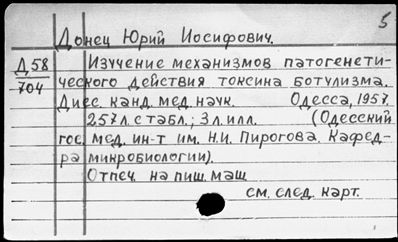 5
Донец Юрий Иосифович.
Д58 Изучение механизмов патогенети-
704 ческого действия токсина ботулизма.
Дисс. канд. мед. наук. Одесса, 1957.
257 л. с табл.; 3 л. илл. (Одесский
гос. мед. ин-т им. Н.И. Пирогова. Кафед-
ра микробиологии).
Отпеч. на пиш. маш
см. след. карт.